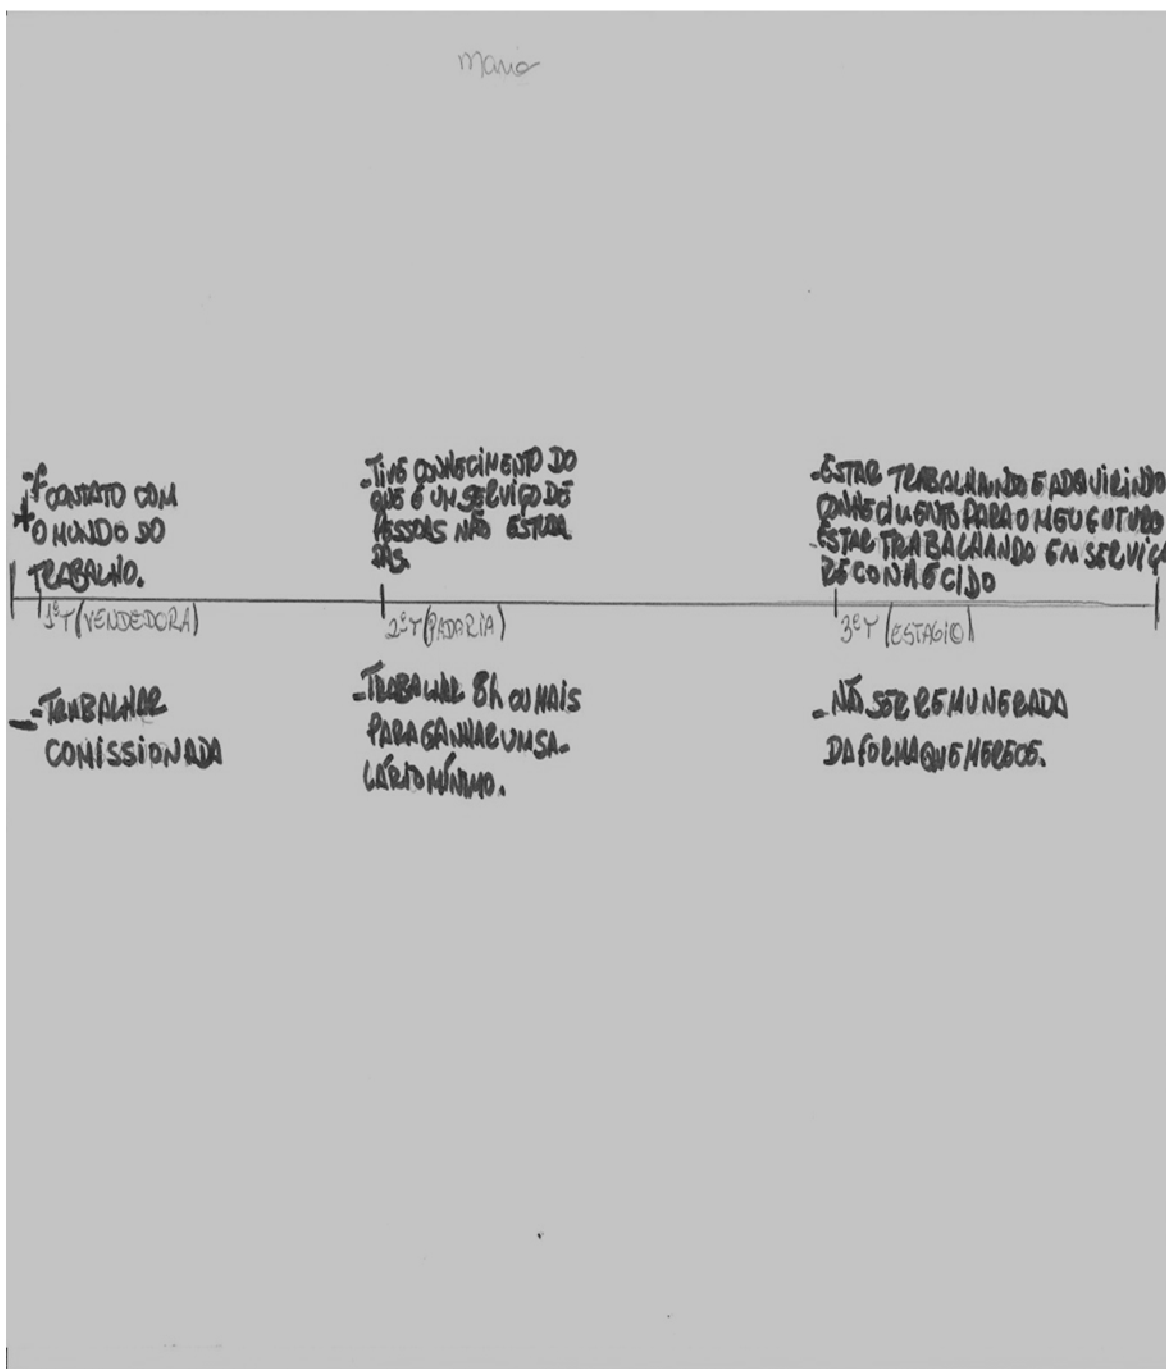 Maria
- CONTATO COM
+ O MUNDO DO
TRABALHO.
- TIVE CONHECIMENTO DO
QUE É UM SERVIÇO DE
PESSOAS NÃO ESTUDA
DAS.
- ESTAR TRABALHANDO E ADQUIRINDO
CONHECIMENTO PARA O MEU FUTURO
- ESTAR TRABALHANDO EM SERVIÇO
RECONHECIDO
1º T (VENDEDORA)
2º T (PADARIA)
3º T (ESTAGIO)
- TRABALHAR
COMISSIONADA
- TRABALHAR 8h OU MAIS
PARA GANHAR UM SA-
LÁRIO MÍNIMO.
- NÃO SER REMUNERADA
DA FORMA QUE MERECE.